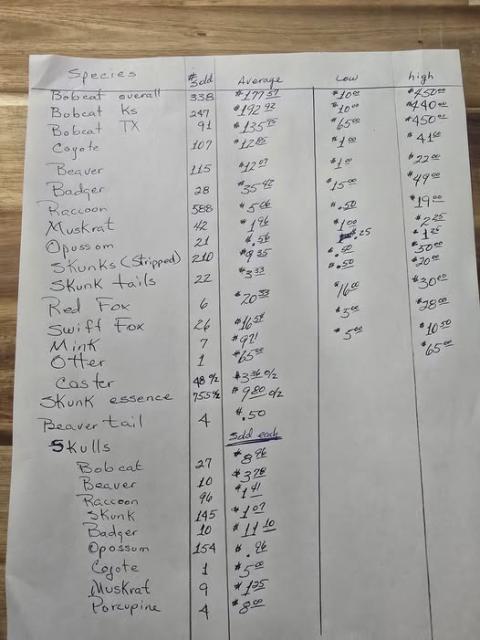 Species # Sold Average Low high
Bobcat overall 338 $177.57 $10.00 $450.00
Bobcat Ks 247 $192.92 $10.00 $440.00
Bobcat TX 91 $135.95 $65.00 $450.00
Coyote 107 $12.85 $1.00 $41.00
Beaver 115 $12.07 $1.00 $22.00
Badger 28 $35.42 $15.00 $49.00
Raccoon 588 $5.06 $.50 $19.00
Muskrat 42 $1.96 $1.00 $2.25
Opossum 21 $.56 $.25 $1.25
Skunks (Stripped) 210 $9.35 $.40 $50.00
Skunk tails 22 $3.33 $.50 $20.00
Red Fox 6 $20.33 $16.00 $30.00
Swift Fox 26 $16.54 $5.00 $28.00
Mink 7 $9.21 $5.00 $10.50
Otter 1 $65.00 $65.00
Caster 48 $3.36 o/z
Skunk essence $9.80 o/z
Beaver tail 4 $.50
Skulls Sold each
Bobcat 27 $8.96
Beaver 10 $3.78
Raccoon 96 $1.41
Skunk 145 $1.07
Badger 10 $11.10
Opossum 154 $.96
Coyote 1 $5.00
Muskrat 9 $1.25
Porcupine 4 $8.00